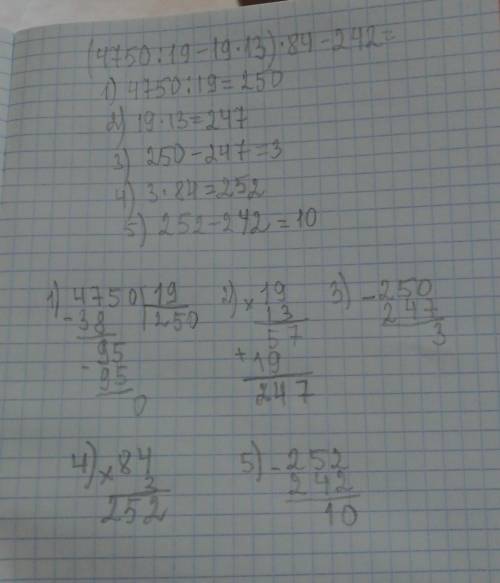 (4750:19-19·13)·84-242=
1) 4750:19=250
2) 19·13=247
3) 250-247=3
4) 3·84=252
5) 252-242=10
1) 4750 19
-38 250
95
-95
0
2) ×19
13
57
+19
247
3) -250
247
3
4) ×84
3
252
5) -252
242
10